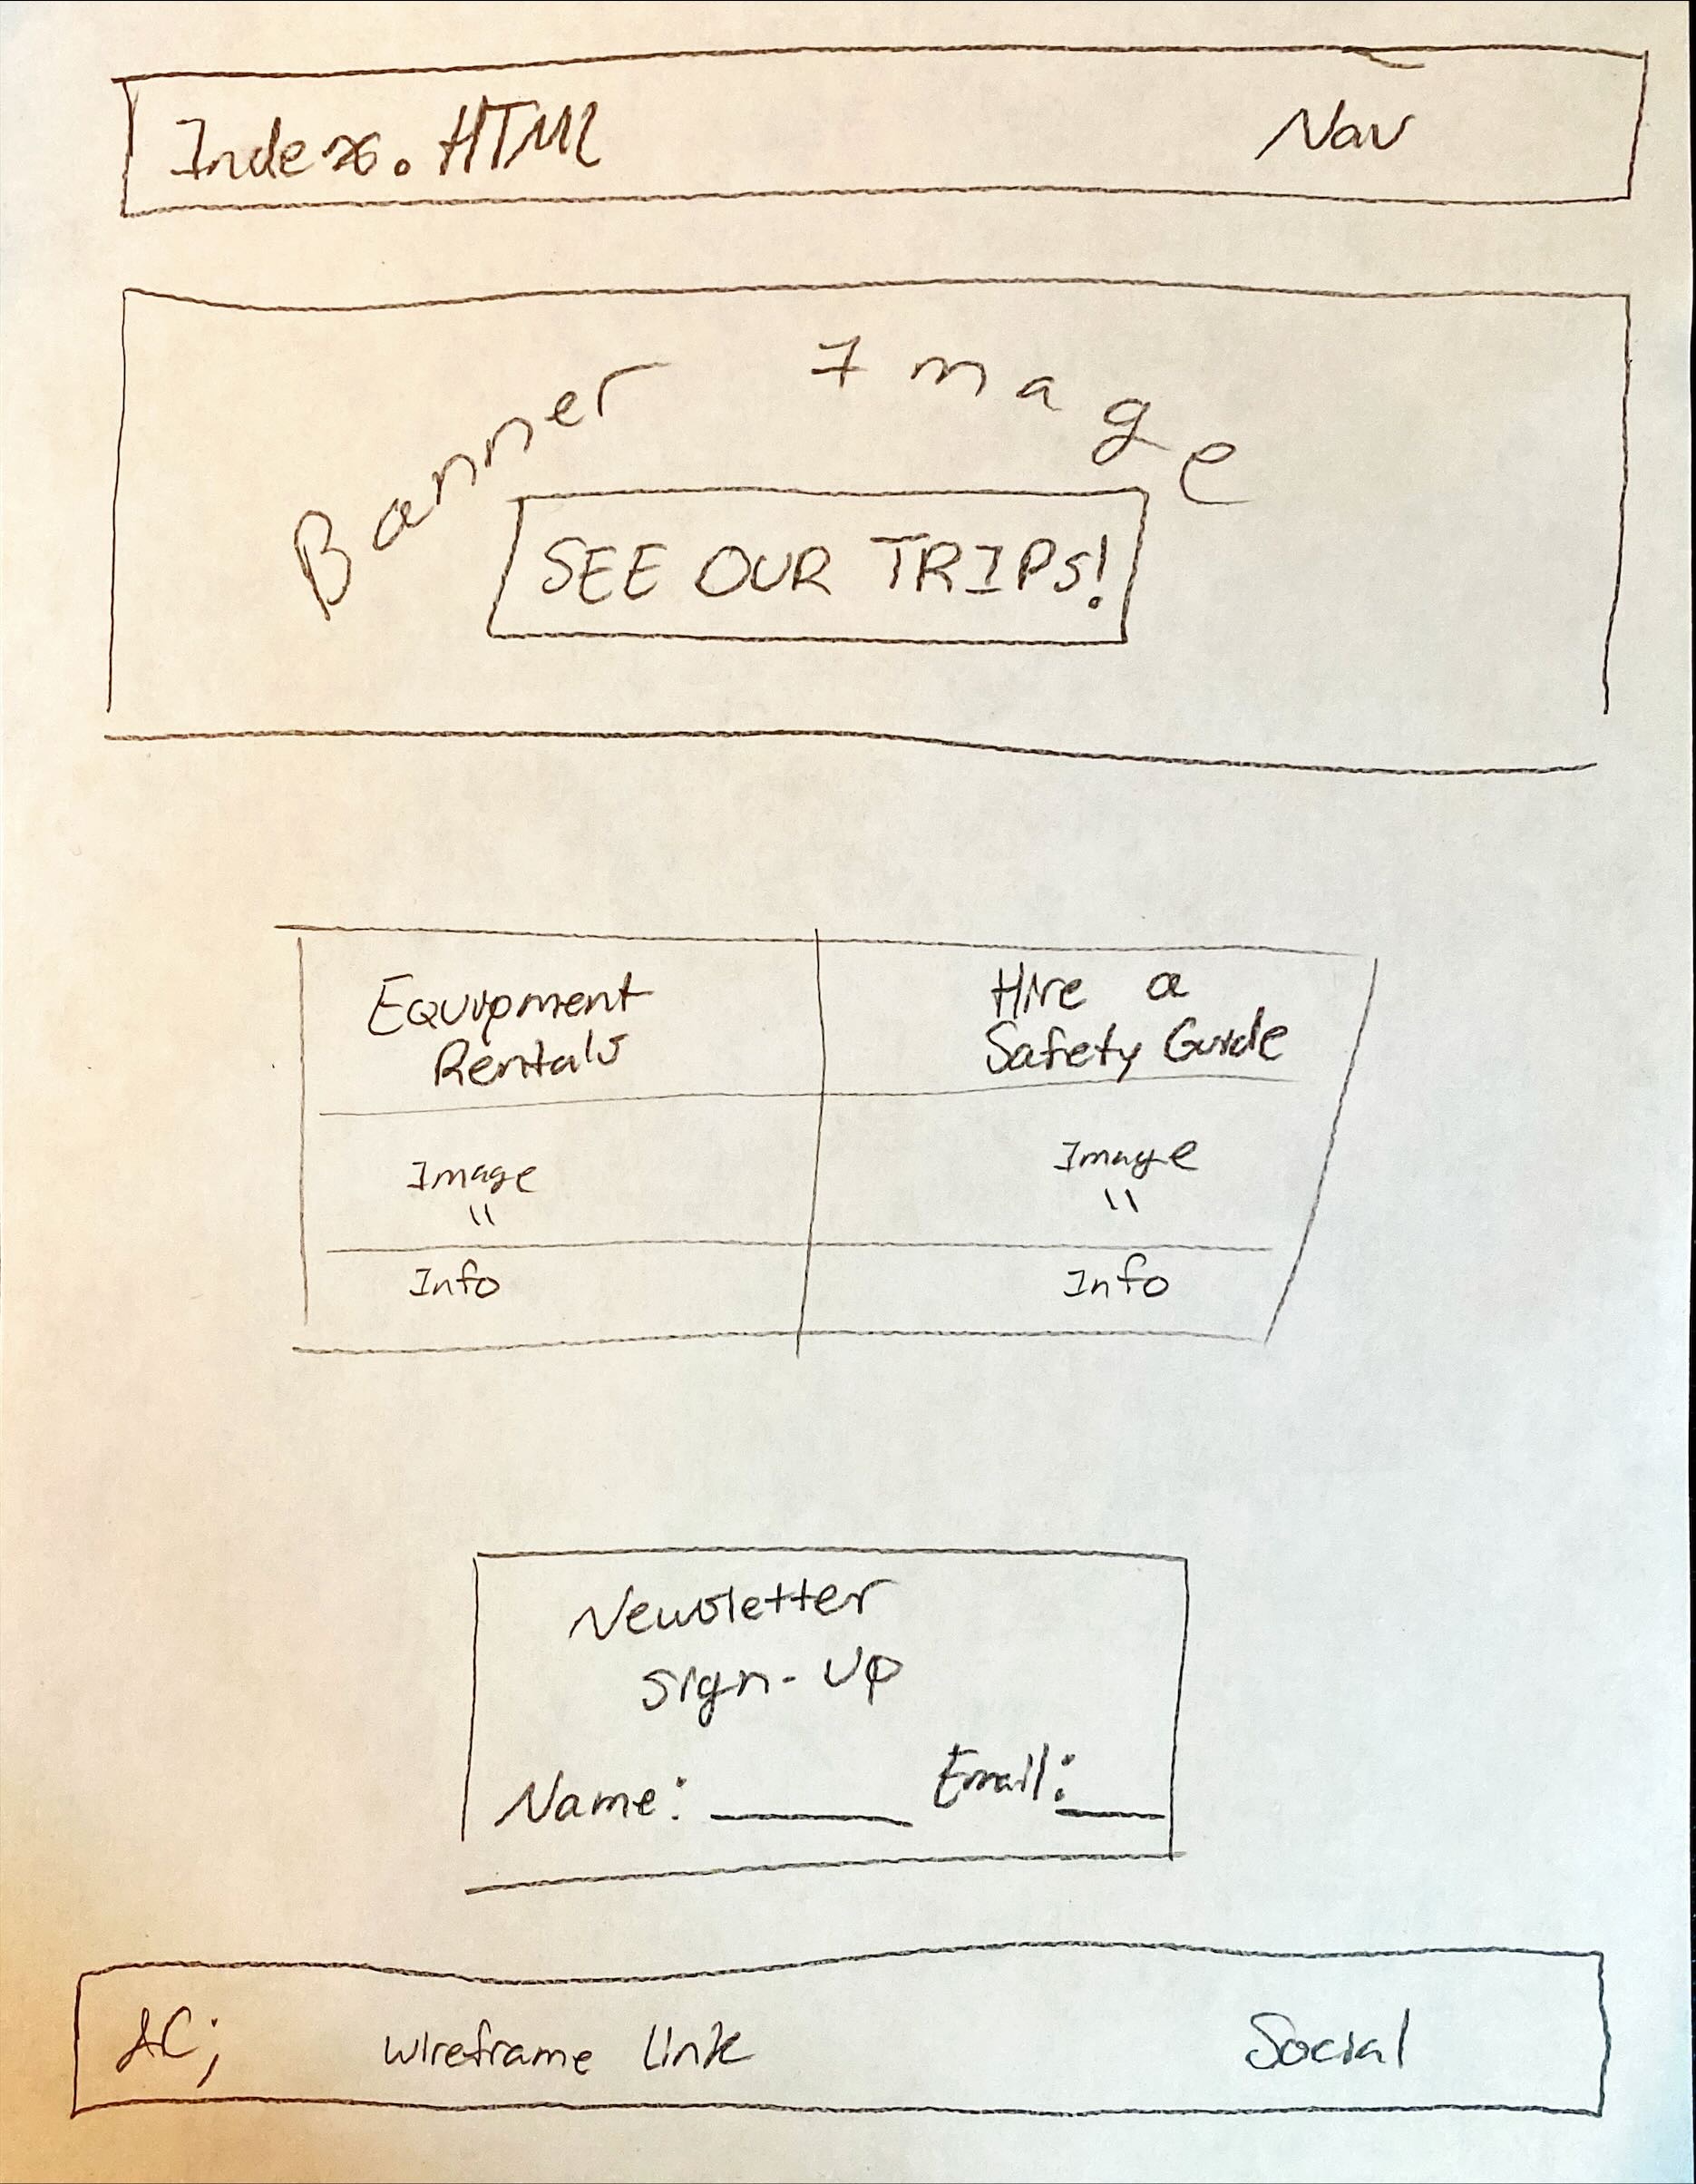 Index.HTML Nav
Banner Image
SEE OUR TRIPS!
Equipment Hire a
Rentals Safety Guide
Image Image
" "
Info Info
Newsletter
Sign-up
Name: Email:
&C; wireframe link Social